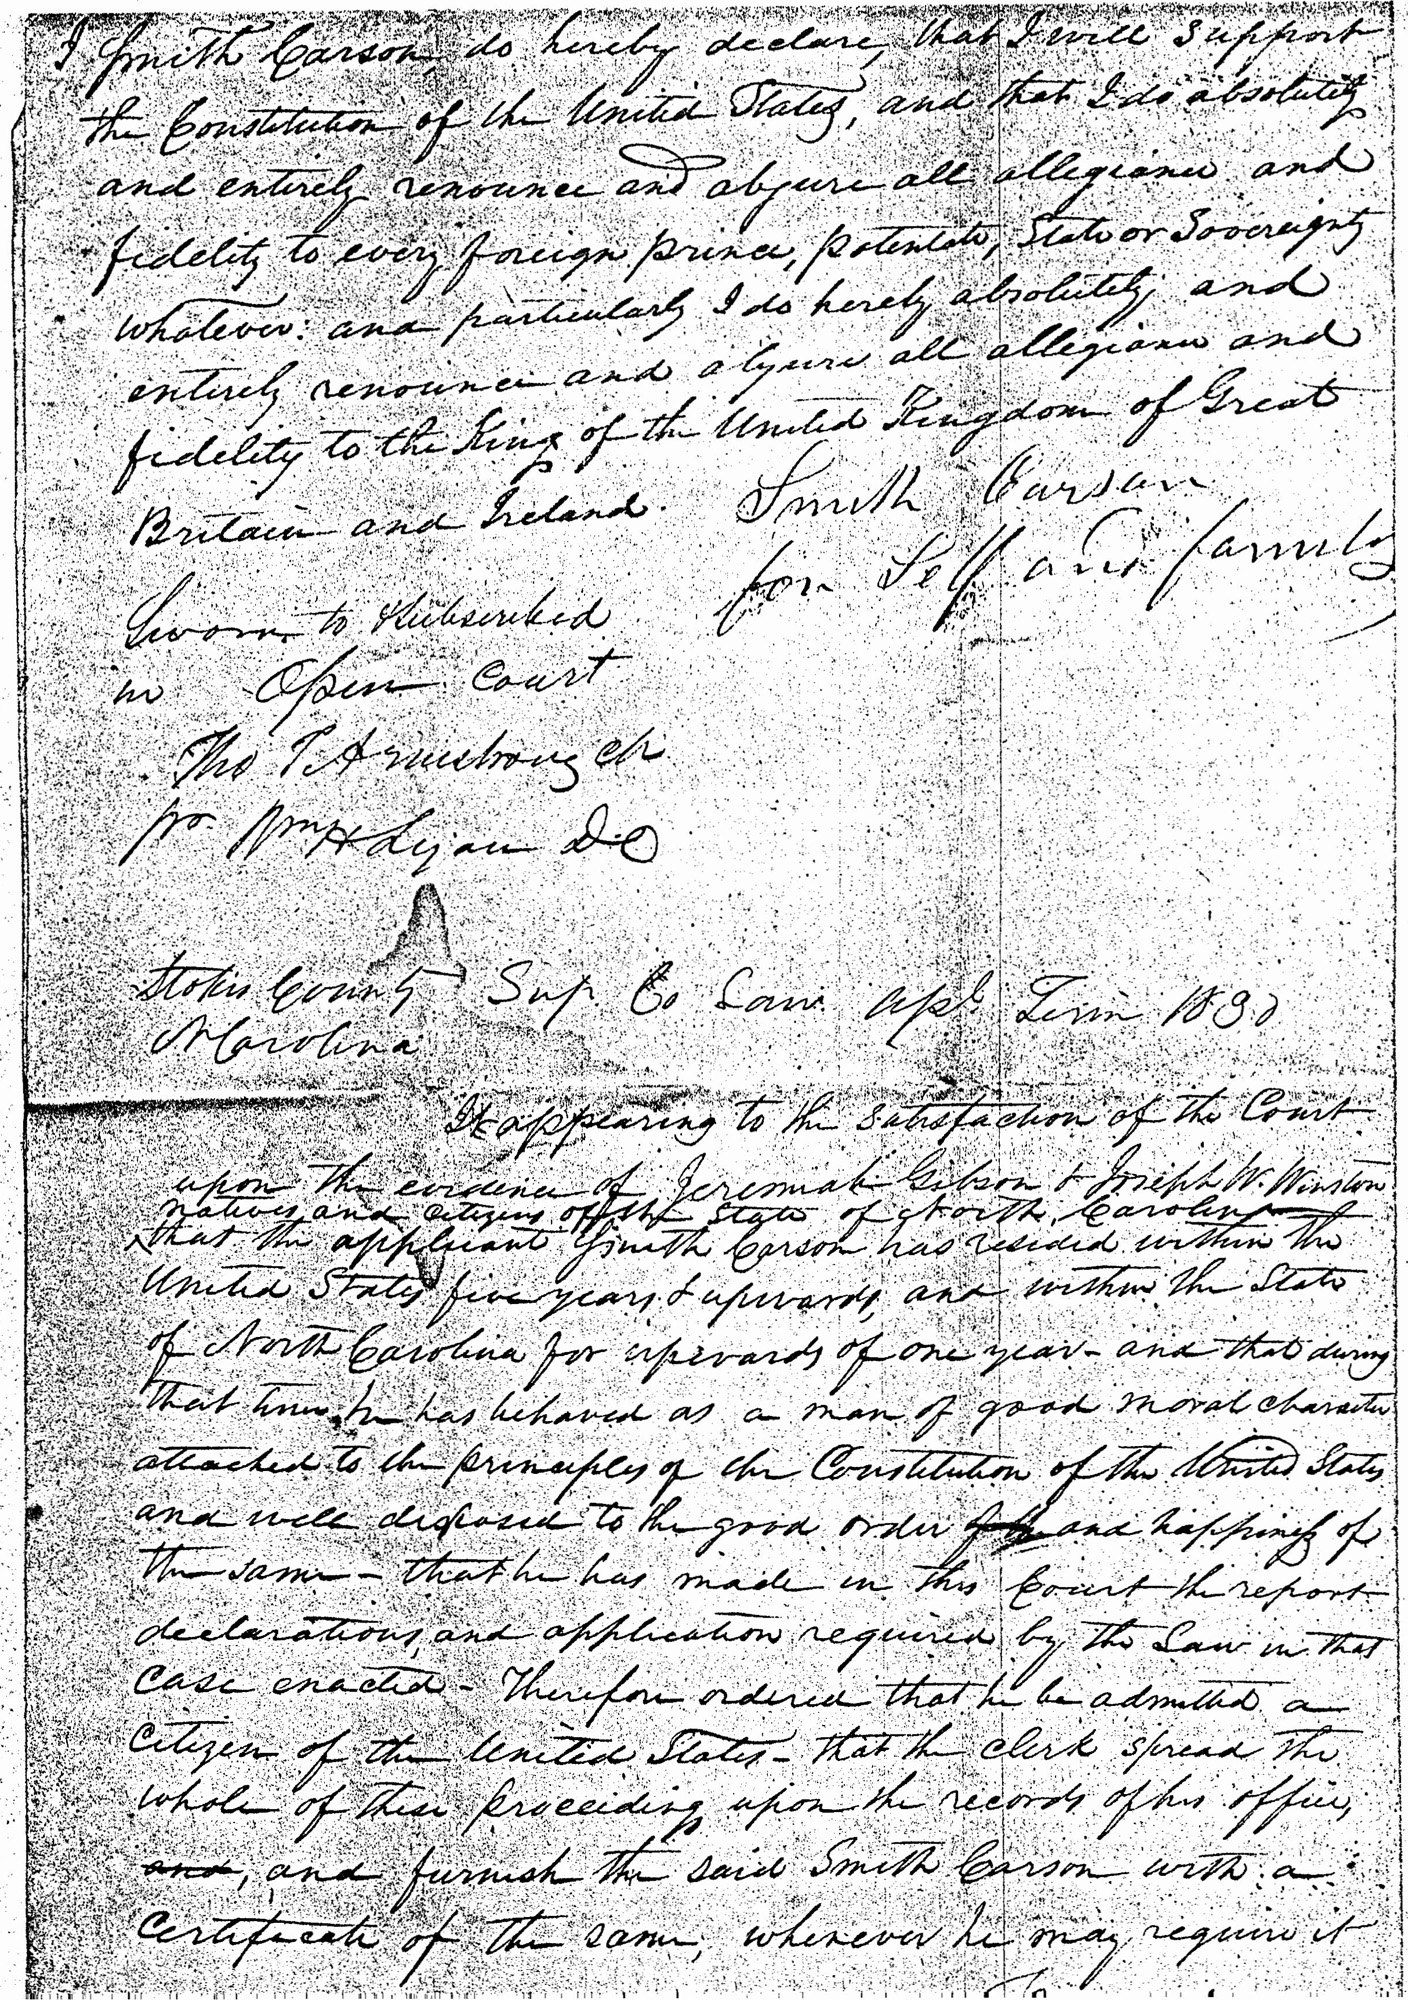 I Smith Carson, do hereby declare, that I will support
the Constitution of the United States, and that I do absolutely
and entirely renounce and abjure all allegiance and
fidelity to every foreign prince, potentate, State or Sovereignty
whatever: and particularly I do hereby absolutely and
entirely renounce and abjure all allegiance and
fidelity to the King of the United Kingdom of Great
Britain and Ireland.
Smith Carson
for Self and family
Sworn to & subscribed
in Open Court
Tho T. Armstrong clk
pr. Wm H D.C
Stokes County Sup. Co Law. apl. Term 1830
N Carolina
It appearing to the satisfaction of the Court
upon the evidence of Jeremiah Gibson & Joseph W. Winston
natives and citizens of the State of North Carolina
that the applicant Smith Carson has resided within the
United States five years & upwards, and within the State
of North Carolina for upwards of one year - and that during
that time he has behaved as a man of good moral character
attached to the principles of the Constitution of the United States
and well disposed to the good order of the and happiness of
the same - that he has made in this Court the report
declarations, and application required by the Law in that
case enacted - Therefore ordered that he be admitted a
citizen of the United States - that the clerk spread the
whole of these proceedings upon the records of his office,
and, and furnish the said Smith Carson with a
certificate of the same, whenever he may require it